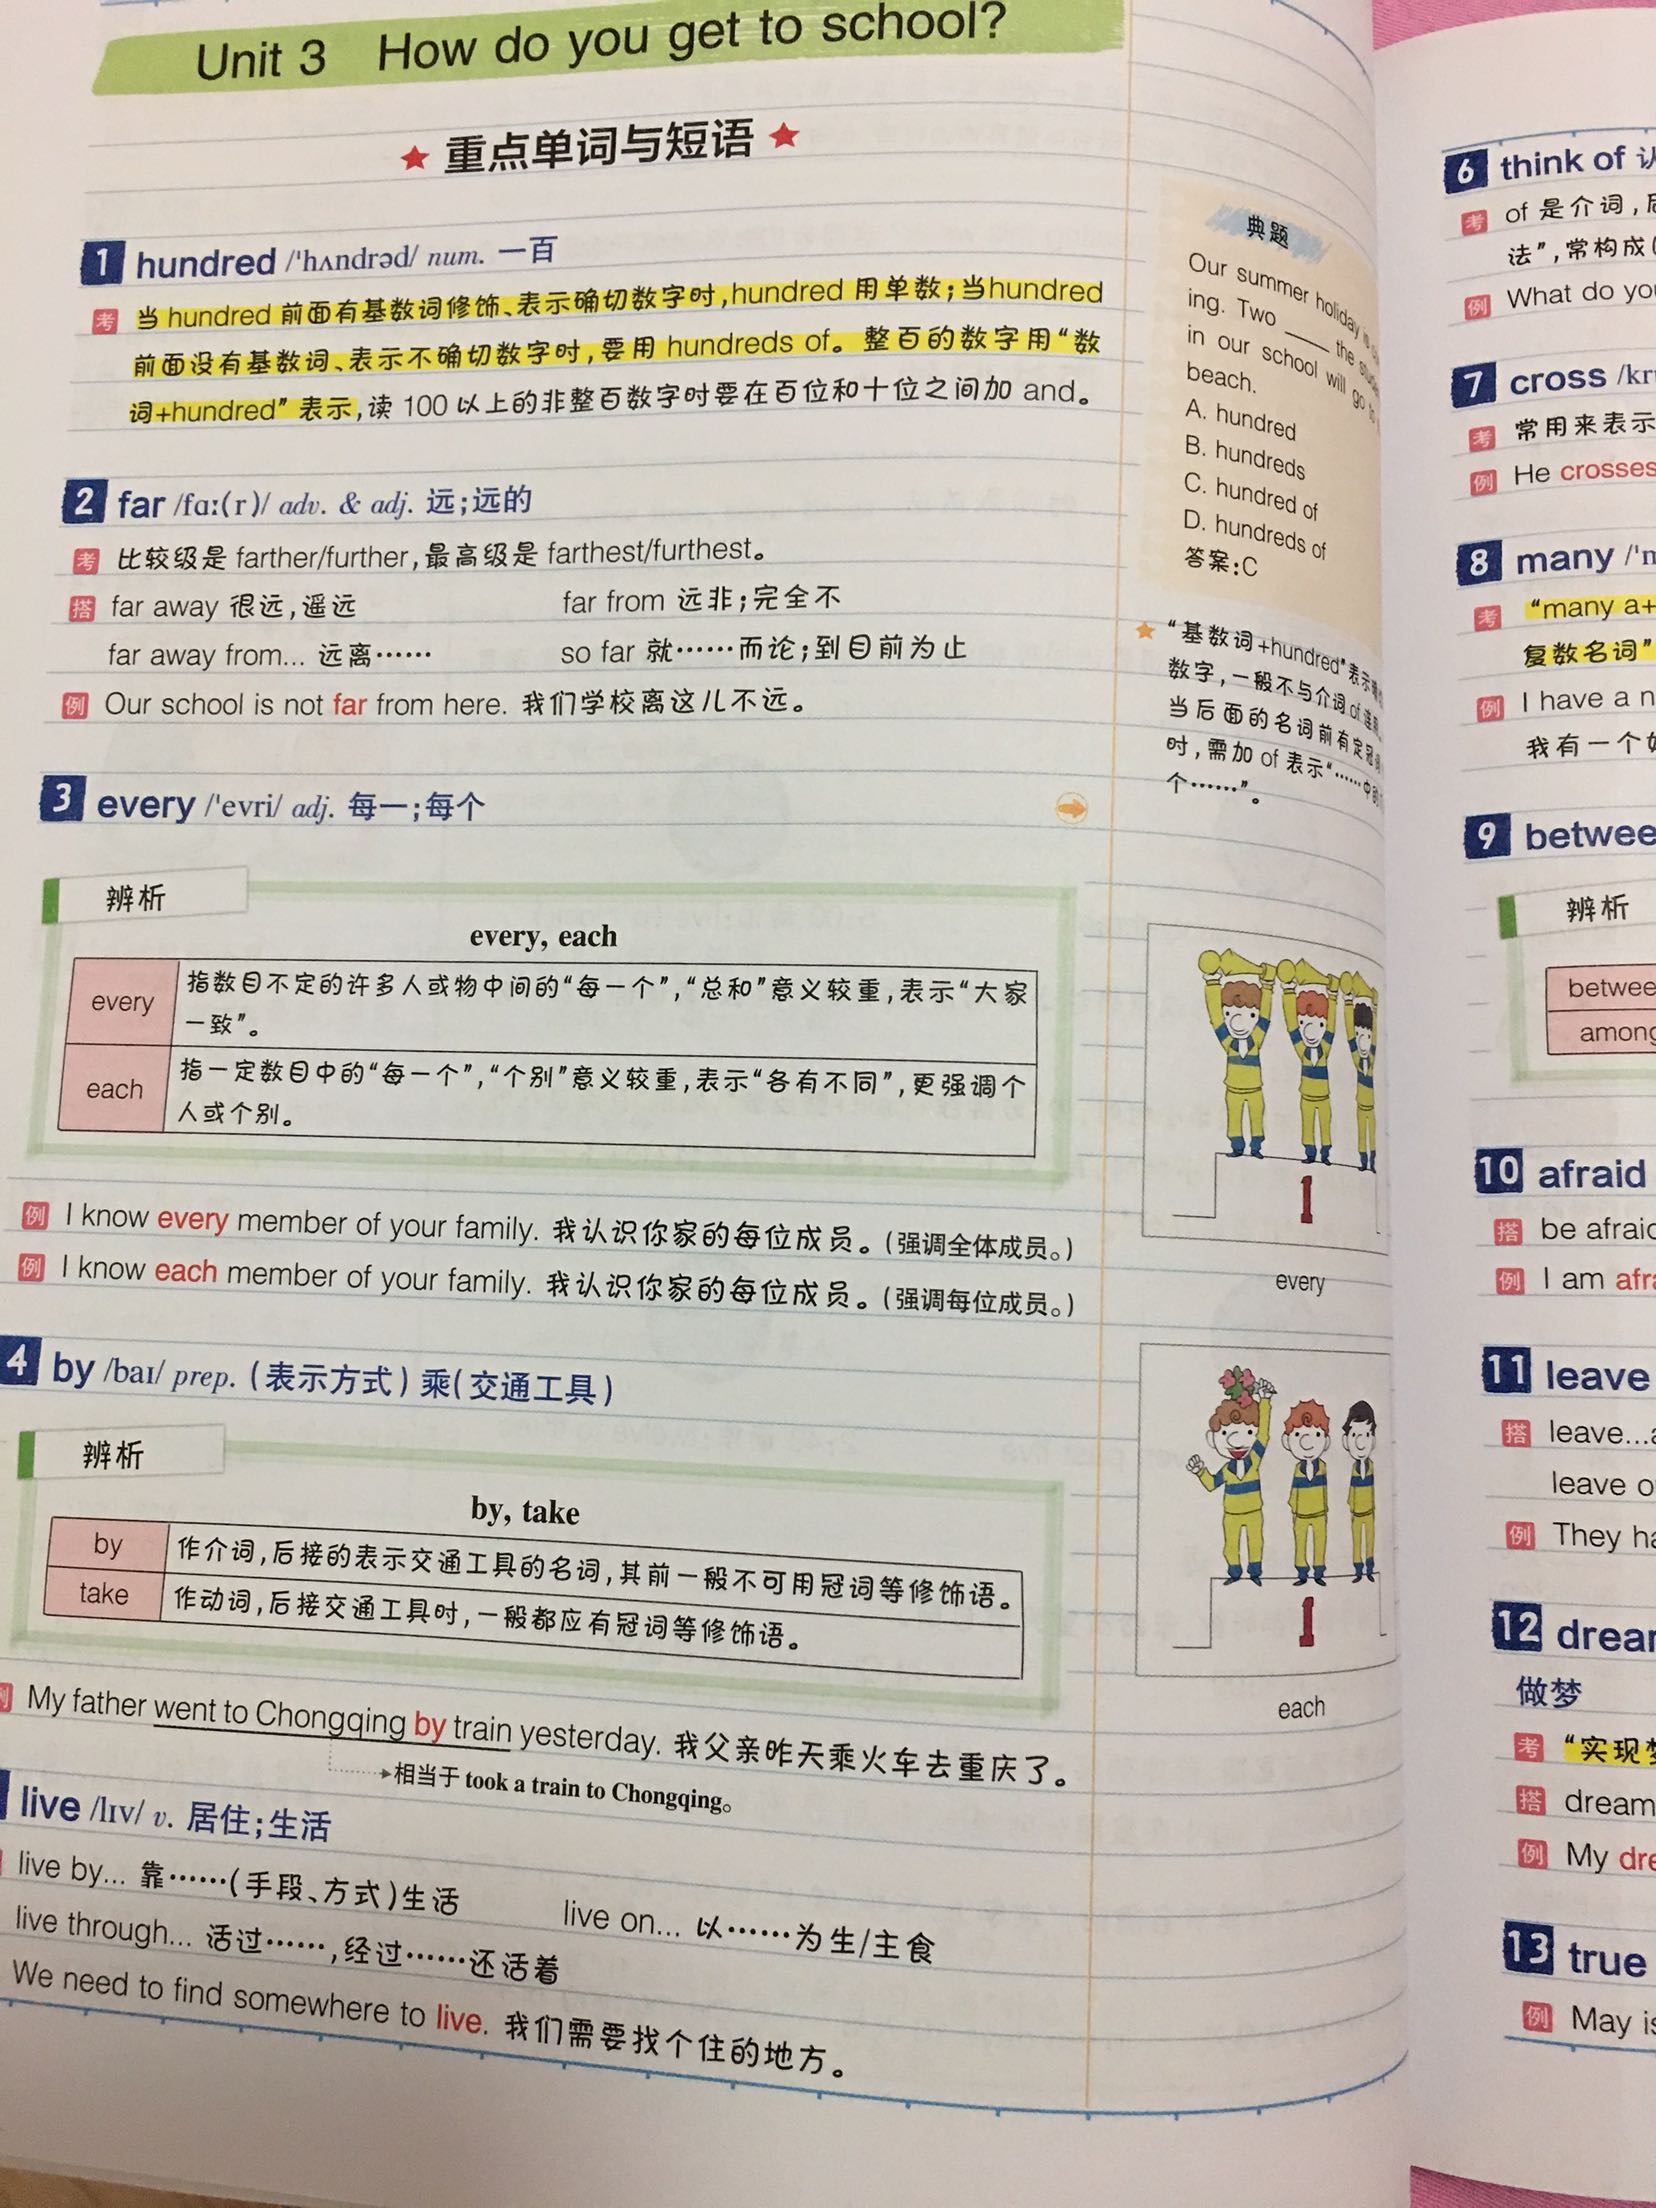 Unit 3 How do you get to school?
★ 重点单词与短语 ★
1 hundred /ˈhʌndrəd/ num. 一百
考 当 hundred 前面有基数词修饰、表示确切数字时,hundred 用单数;当hundred
前面没有基数词、表示不确切数字时,要用 hundreds of。整百的数字用“数
词+hundred”表示,读 100 以上的非整百数字时要在百位和十位之间加 and。
2 far /fɑː(r)/ adv. & adj. 远;远的
考 比较级是 farther/further,最高级是 farthest/furthest。
搭 far away 很远,遥远 far from 远非;完全不
far away from... 远离…… so far 就……而论;到目前为止
例 Our school is not far from here. 我们学校离这儿不远。
3 every /ˈevri/ adj. 每一;每个
辨析
every, each
every 指数目不定的许多人或物中间的“每一个”,“总和”意义较重,表示“大家
一致”。
each 指一定数目中的“每一个”,“个别”意义较重,表示“各有不同”,更强调个
人或个别。
例 I know every member of your family. 我认识你家的每位成员。(强调全体成员。)
例 I know each member of your family. 我认识你家的每位成员。(强调每位成员。)
4 by /baɪ/ prep. (表示方式)乘(交通工具)
辨析
by, take
by 作介词,后接的表示交通工具的名词,其前一般不可用冠词等修饰语。
take 作动词,后接交通工具时,一般都应有冠词等修饰语。
例 My father went to Chongqing by train yesterday. 我父亲昨天乘火车去重庆了。
相当于 took a train to Chongqing。
live /lɪv/ v. 居住;生活
live by... 靠……(手段、方式)生活 live on... 以……为生/主食
live through... 活过……,经过……还活着
We need to find somewhere to live. 我们需要找个住的地方。
典题
Our summer holiday is
ing. Two ____ the
in our school will go
beach.
A. hundred
B. hundreds
C. hundred of
D. hundreds of
答案:C
★ “基数词+hundred”表示
数字,一般不与介词 of
当后面的名词前有定冠
时,需加 of 表示“……中的
个……”。
1
every
1
each
6 think of
考 of 是介词,
法”,常构成
例 What do
7 cross
考 常用来表示
例 He crosses
8 many
考 “many a+
复数名词”
例 I have a
我有一个
9
辨析
10 afraid
搭 be
例 I am
11 leave
搭 leave...
leave
例 They
12
做梦
考 “实现
搭 dream
例 My
13 true
例 May